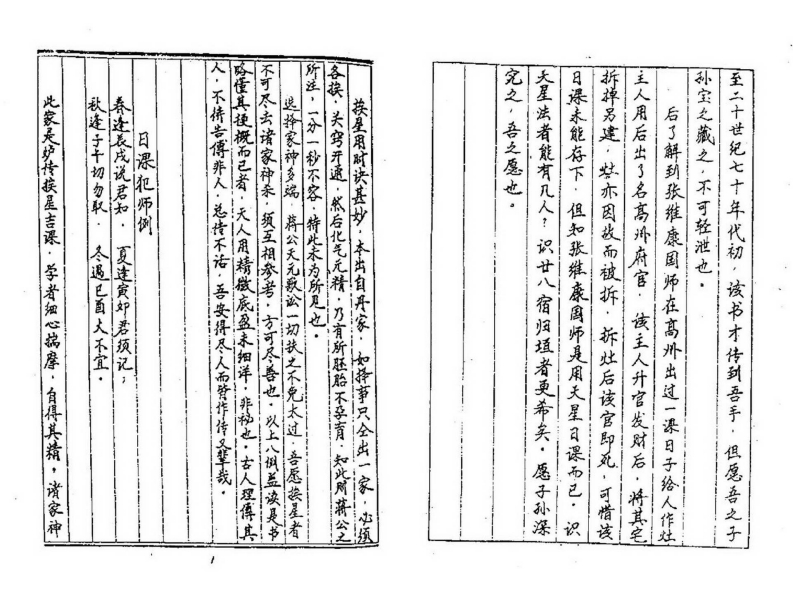 至二十世纪七十年代初，该书才传到吾手，但愿吾之子
孙宝之藏之，不可轻泄也。
后了解到张维康国师在高州出过一课日子给人作灶
主人用后出了名高州府官，该主人升官发财后，将其宅
拆掉另建，灶亦因故而被拆，拆灶后该官即死，可惜该
日课未能存下，但知张维康国师是用天星日课而已。识
天星法者能有几人？识廿八宿归垣者更希矣。愿子孙深
究之，吾之愿也。
挨星用时诀甚妙，本出自丹家，如择事只全出一家，必须
各挨，关窍开通，然后化气元精，乃有所胚胎不孕育，知此则蒋公之
所注，一分一秒不容，特此未为所见也。
选择家神多端，蒋公天元歌讼一切扶之不免太过，吾愿挨星者
不可尽去诸家神杀，须互相参考，方可尽善也。以上八例益诀是书
略懂其梗概而已者，天人用精微底盈未细详，非秘也。古人理传其
人，不待告传非人，总持不话，吾安得尽人而皆作传又辈哉。
日课犯师例
春逢辰戌说君知，夏逢寅卯君须记；
秋逢子午切勿取，冬遇己酉大不宜。
此家是妒传挨星吉课，学者细心揣摩，自得其精，诸家神
1